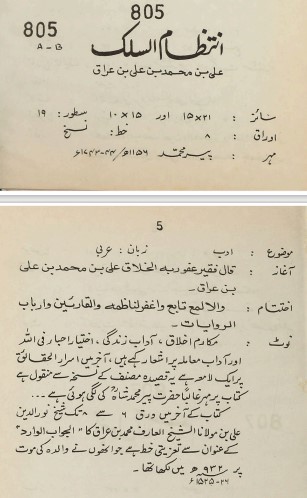 805
805
A-B
انتظام السلک
علی بن محمد بن علی بن عراق
سائز : ۲۱×۱۵ اور ۱۵×۱۰ سطور : ۱۹
اوراق : ۸ خط : نسخ
مہر : پیر محمد ۱۱۵۶ھ/۴۴-۱۷۴۳ء
5
موضوع : ادب زبان : عربی
آغاز : قال فقیر عفو ربه الخلاق علی بن محمد بن علی
بن عراق۔
اختتام : والا لمع تابع واغفر لناظمه والقارئین وارباب
الروایات۔
نوٹ : مکارم اخلاق، آداب زندگی، اختیار احباب فی اللہ
اور آداب معاملہ پر اشعار کہے ہیں، آخر میں اسرار الحقائق
پر ایک لامعہ ہے یہ قصیدہ مصنف کے نسخہ سے منقول ہے
کتاب پر مہر غالباً حضرت پیر محمد شاہؒ کی لگی ہوئی ہے...
کتاب کے آخر میں ورق ۶ سے ۸ تک شیخ نور الدین
علی بن مولانا الشیخ العارف محمد بن عراق کا "الجواب الوارد"
کے عنوان سے تعزیتی خط ہے جو انھوں نے والدہ کی موت
پر ۹۳۲ھ میں لکھا تھا۔
۲۶-۱۵۲۵ء